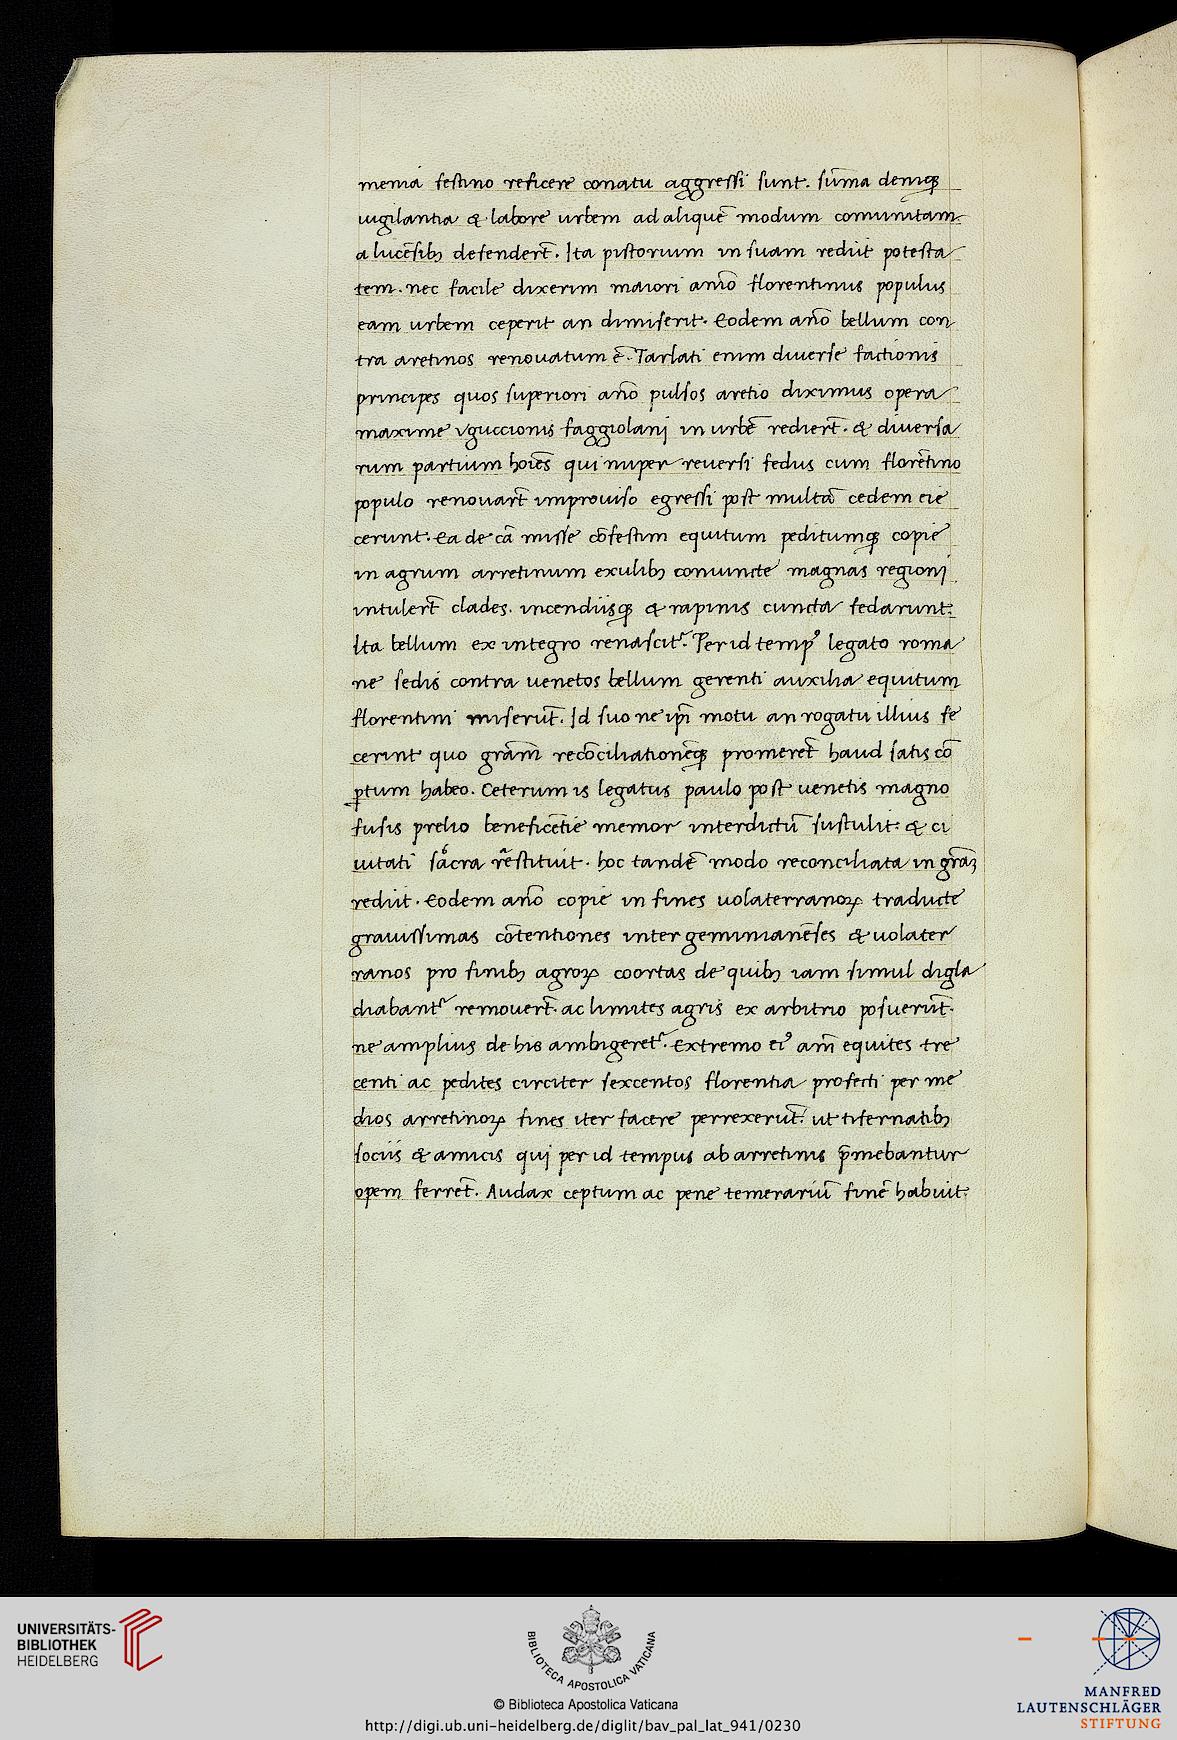 menia festino reficere conatu aggressi sunt. sũma deniqꝫ
uigilantia & labore urbem ad aliquẽ modum comunitam
a lucẽsibꝫ defendert̃. Ita pistorium in suam redijt potesta
tem. nec facile dixerim maiori anio̅ florentinus populus
eam urbem ceperit an dimiserit. Eodem año bellum con
tra aretinos renouatum ẽ. Tarlati enim diuerse factionis
principes quos superiori año pulsos aretio diximus opera
maxime vguccionis faggiolanj in urbẽ rediert̃. & diuersa
rum partium hoies̃ qui nuper reuersi fedus cum florẽtino
populo renouart̃ improuiso egressi post multã cedem eie
cerunt. Ea de cã misse cõfestim equitum peditumqꝫ copie
in agrum arretinum exulibꝫ coniuncte magnas regionj
intulert̃ clades. incendijsqꝫ & rapinis cuncta fedarunt.
Ita bellum ex integro renascit᷑. Per id tempꝰ legato roma
ne sedis contra uenetos bellum gerenti auxilia equitum
florentini miserũt. Id suo ne ipĩ motu an rogatu illius fe
cerint quo grãm recõciliationẽqꝫ promeret̃ haud satis cõ
ꝑtum habeo. Ceterum is legatus paulo post uenetis magno
fusis prelio beneficẽtie memor interdictũ sustulit: & ci
uitati sacra restituit. hoc tandẽ modo reconciliata in grãꝫ
redijt. Eodem año copie in fines uolaterranoꝝ traducte
grauissimas cõtentiones inter geminianẽses & uolater
ranos pro finibꝫ agroꝝ coortas de quibꝫ iam simul digla
diabant᷑ remouert̃. ac limites agris ex arbitrio posuerũt.
ne amplius de his ambigeret᷑. Extremo eiꝰ am̃ equites tre
centi ac pedites circiter sexcentos florentia profecti per me
dios arretinoꝝ fines iter facere perrexerũt. ut tifernatibꝫ
socijs & amicis quj per id tempus ab arretinis p̃mebantur
opem ferret̃. Audax ceptum ac pene temerariũ finẽ habuit.
UNIVERSITÄTS-
BIBLIOTHEK
HEIDELBERG
BIBLIOTECA APOSTOLICA VATICANA
© Biblioteca Apostolica Vaticana
http://digi.ub.uni-heidelberg.de/diglit/bav_pal_lat_941/0230
MANFRED
LAUTENSCHLÄGER
STIFTUNG